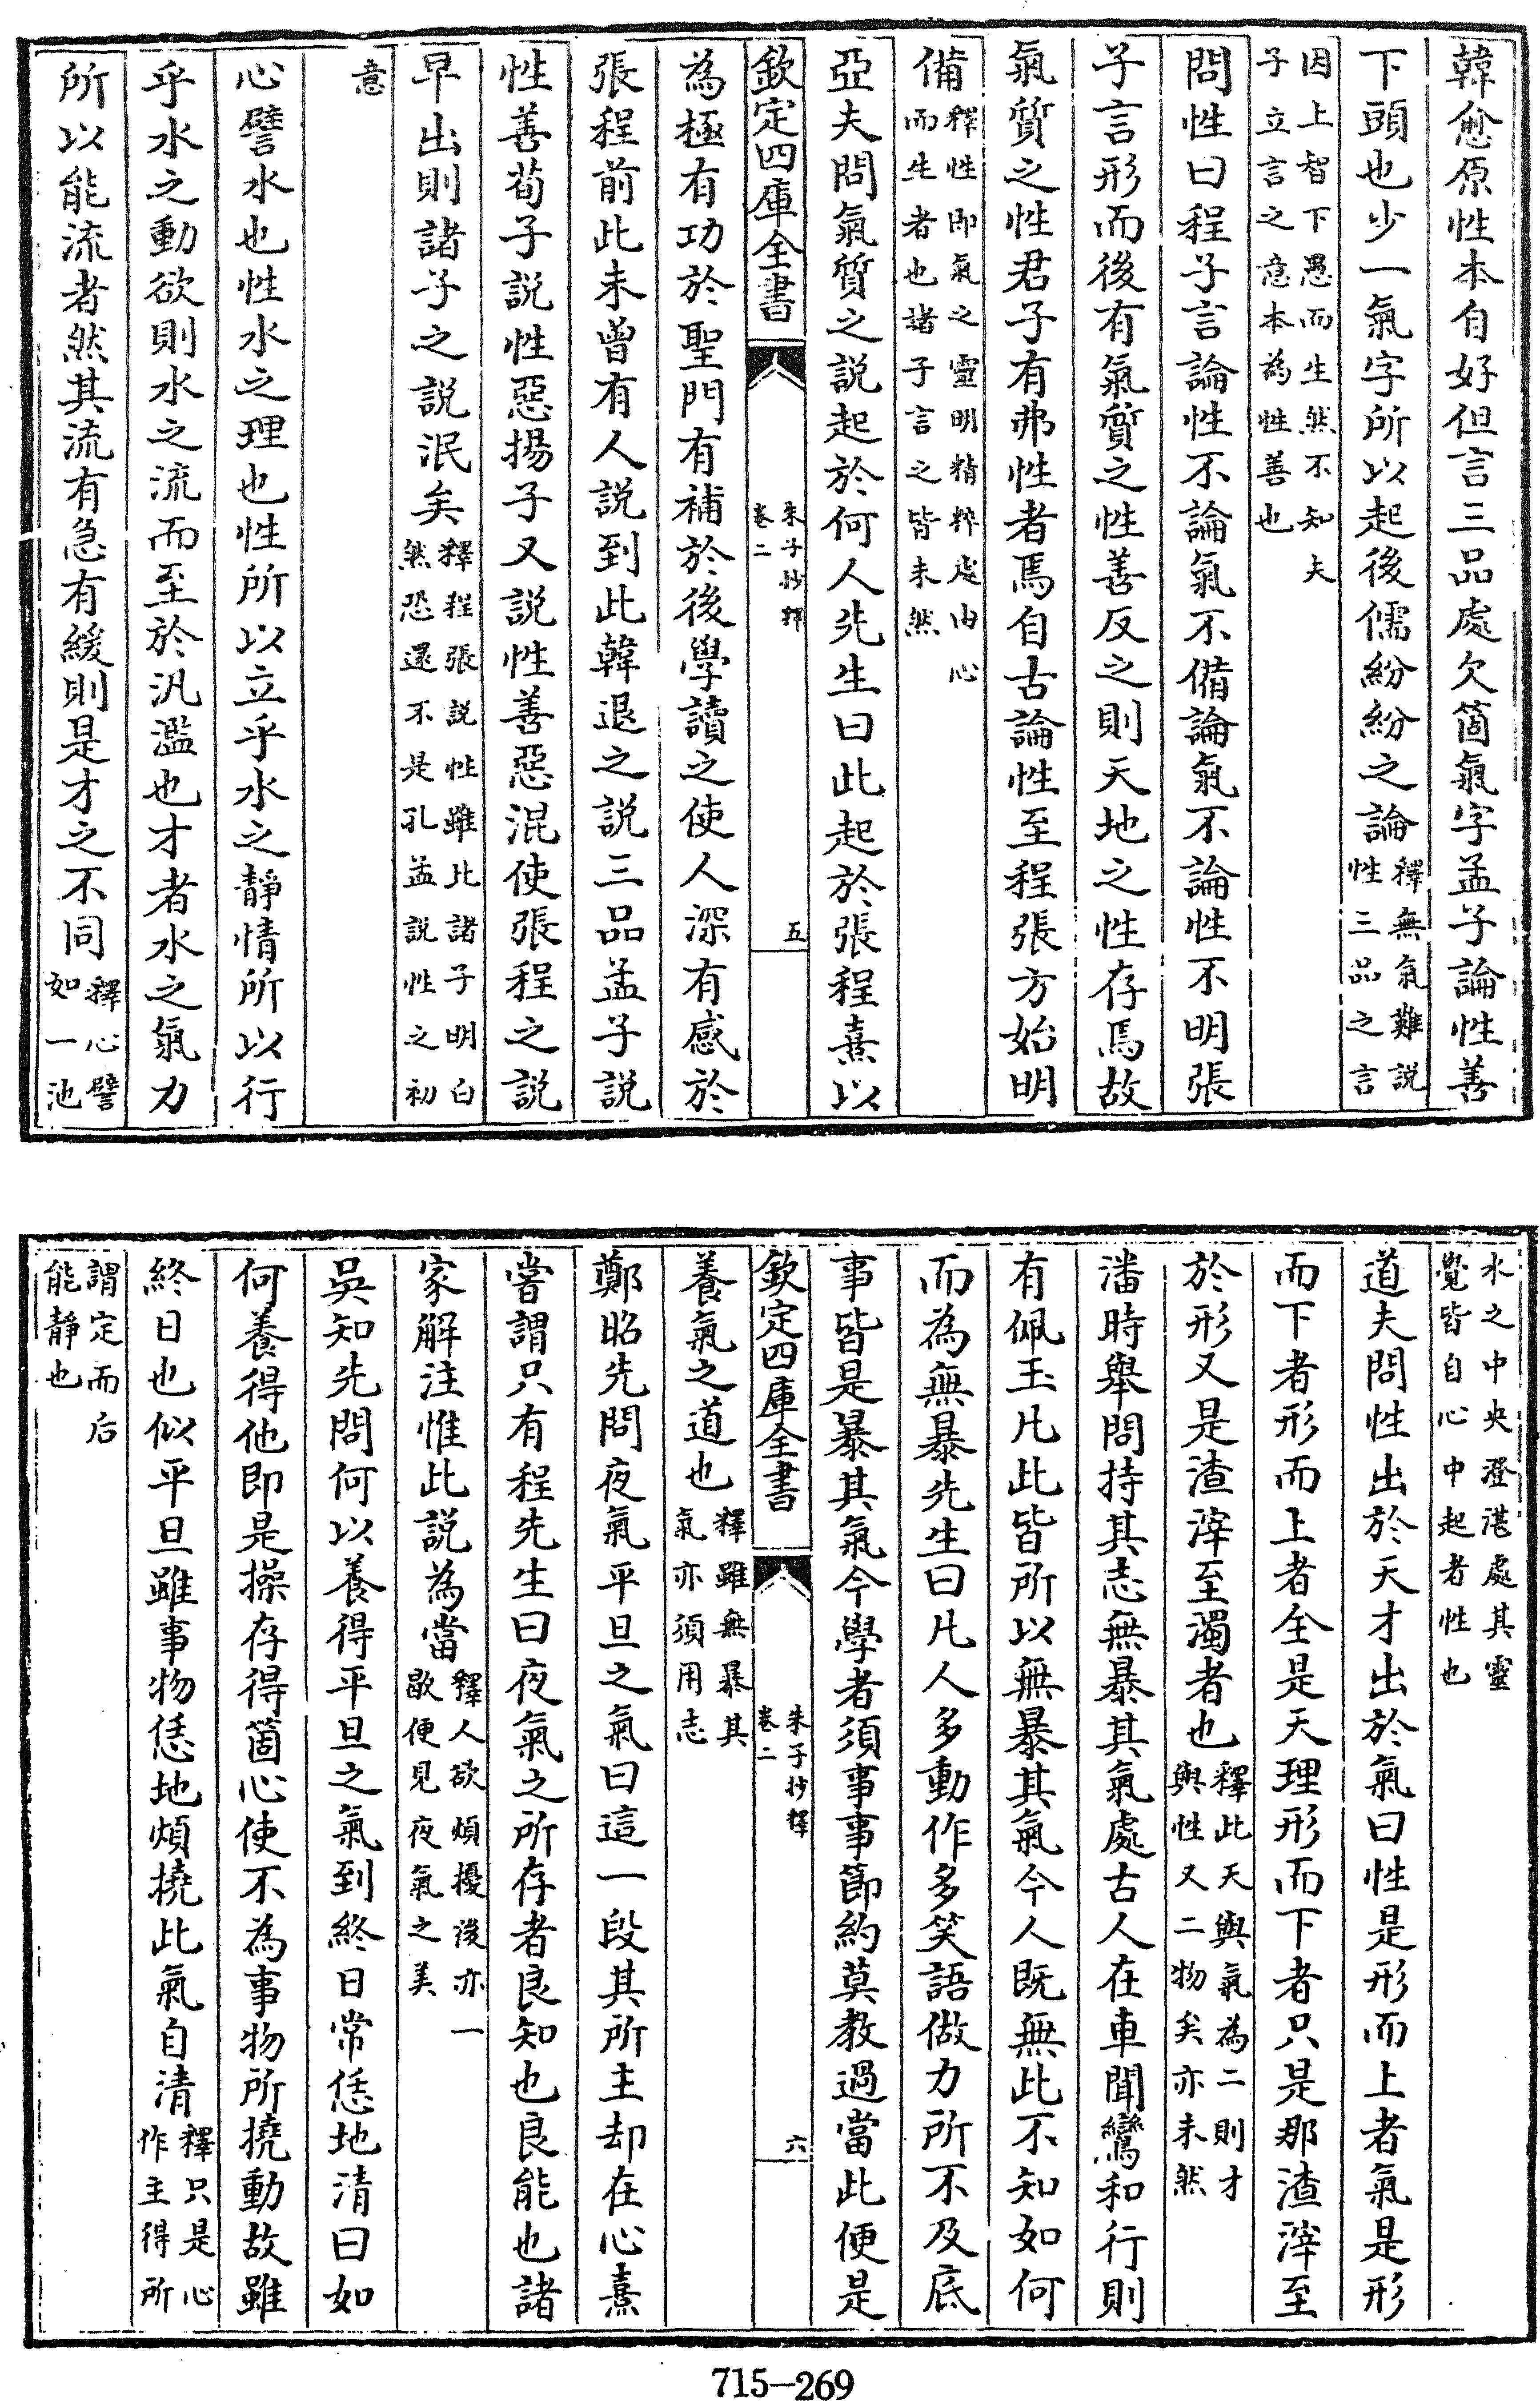 韓愈原性本自好但言三品處欠箇氣字孟子論性善
下頭也少一氣字所以起後儒紛紛之論釋無氣難說
性三品之言
因上智下愚而生然不知夫
子立言之意本為性善也
問性曰程子言論性不論氣不備論氣不論性不明張
子言形而後有氣質之性善反之則天地之性存焉故
氣質之性君子有弗性者焉自古論性至程張方始明
備釋性即氣之靈明精粹處由心
而生者也諸子言之皆未然
亞夫問氣質之說起於何人先生曰此起於張程熹以
欽定四庫全書
朱子抄釋
卷二
五
為極有功於聖門有補於後學讀之使人深有感於
張程前此未曾有人說到此韓退之說三品孟子說
性善荀子說性惡揚子又說性善惡混使張程之說
早出則諸子之說泯矣釋程張說性雖比諸子明白
然恐還不是孔孟說性之初
意
心譬水也性水之理也性所以立乎水之靜情所以行
乎水之動欲則水之流而至於汎濫也才者水之氣力
所以能流者然其流有急有緩則是才之不同釋心譬
如一池
水之中央澄湛處其靈
覺皆自心中起者性也
道夫問性出於天才出於氣曰性是形而上者氣是形
而下者形而上者全是天理形而下者只是那渣滓至
於形又是渣滓至濁者也釋此天與氣為二則才
與性又二物矣亦未然
潘時舉問持其志無暴其氣處古人在車聞鸞和行則
有佩玉凡此皆所以無暴其氣今人既無此不知如何
而為無暴先生曰凡人多動作多笑語做力所不及底
事皆是暴其氣今學者須事事節約莫教過當此便是
欽定四庫全書
朱子抄釋
卷二
六
養氣之道也釋雖無暴其
氣亦須用志
鄭昭先問夜氣平旦之氣曰這一段其所主却在心熹
嘗謂只有程先生曰夜氣之所存者良知也良能也諸
家解注惟此說為當釋人欲煩擾後亦一
歇便見夜氣之美
吳知先問何以養得平旦之氣到終日常恁地清曰如
何養得他即是操存得箇心使不為事物所撓動故雖
終日也似平旦雖事物恁地煩撓此氣自清釋只是心
作主得所
謂定而后
能靜也
715-269